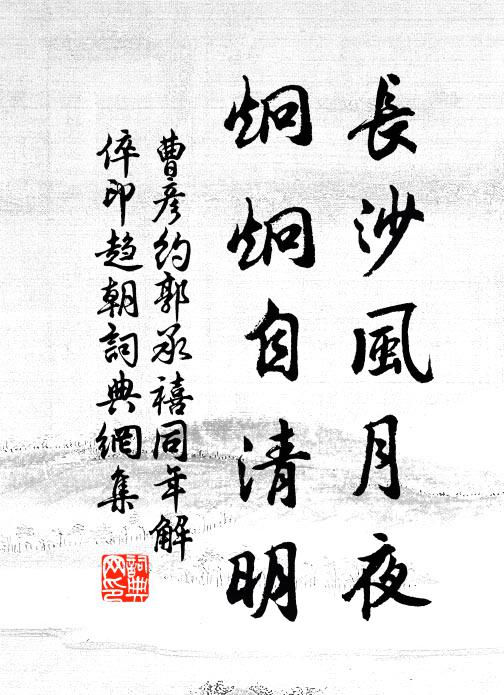 長沙風月夜
炯炯自清明
曹彥約郭承禧同年解
倅印趨朝詞典網集
詞典
网印